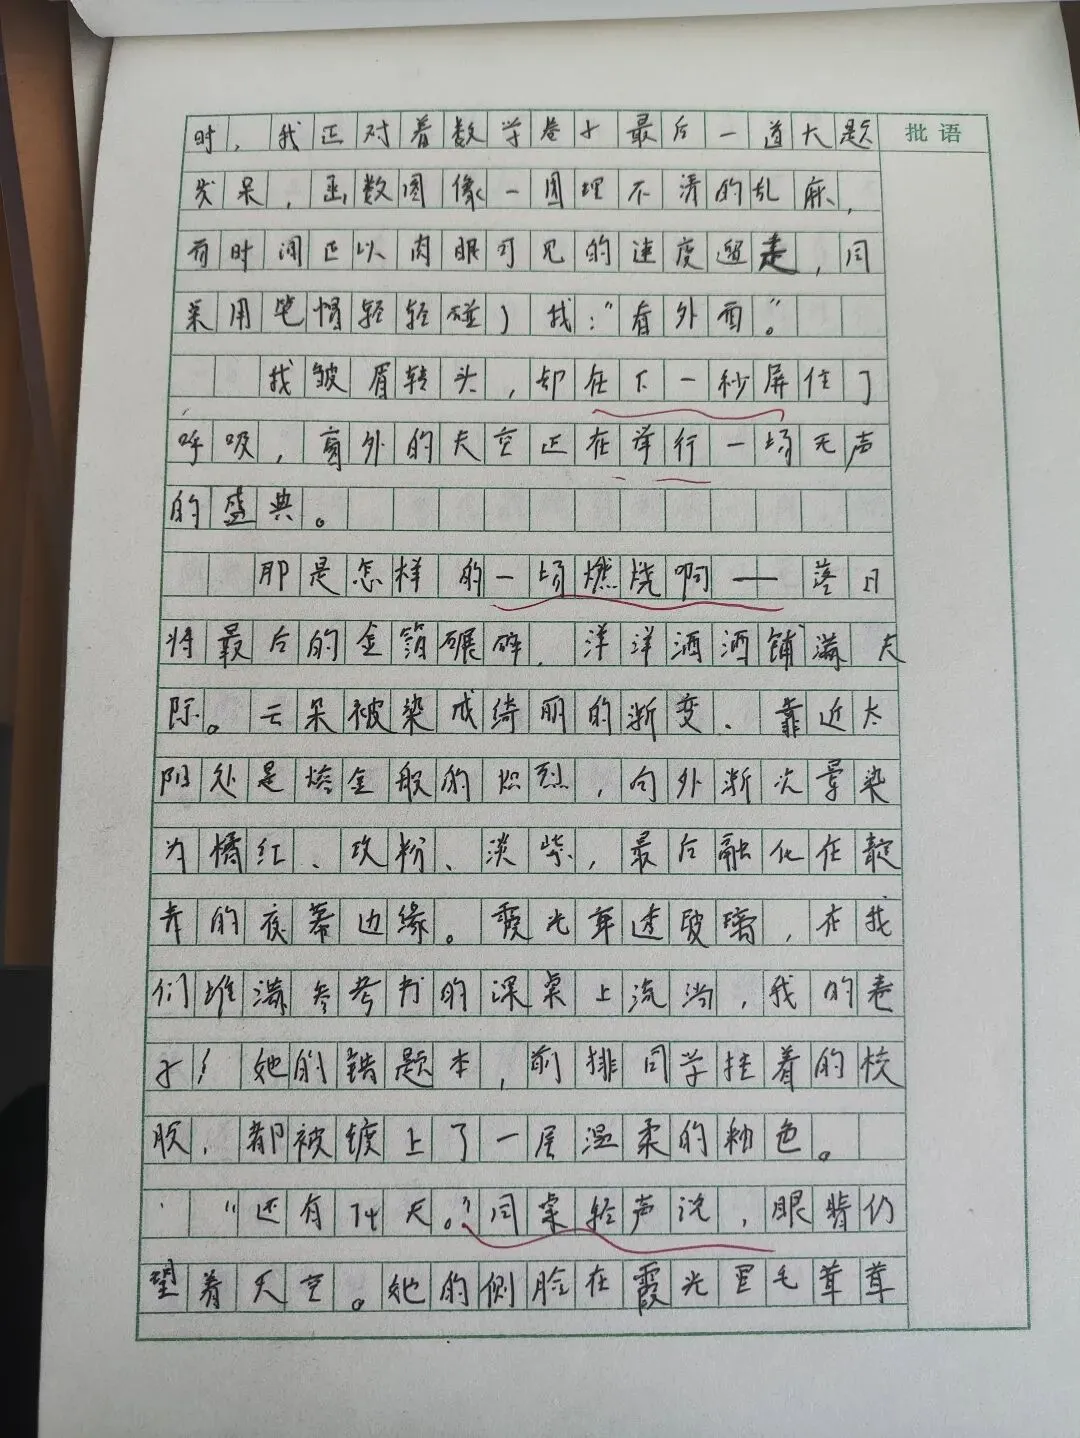 批语
时，我正对着数学卷子最后一道大题
发呆，函数图像一团理不清的乱麻，
而时间正以肉眼可见的速度溜走，同
桌用笔帽轻轻碰了我：“看外面”。
我皱眉转头，却在下一秒屏住了
呼吸，窗外的天空正在举行一场无声
的盛典。
那是怎样的一场燃烧啊——落日
将最后的金箔碾碎，洋洋洒洒铺满天
际。云朵被染成绮丽的渐变，靠近太
阳处是熔金般的炽烈，向外渐次晕染
为橘红、玫粉、淡紫，最后融化在靛
青的夜幕边缘。霞光穿透玻璃，在我
们堆满参考书的课桌上流淌，我的卷
子，她的错题本，前排同学挂着的校
服，都被镀上了一层温柔的釉色。
“还有74天。”同桌轻声说，眼睛仍
望着天空。她的侧脸在霞光里毛茸茸